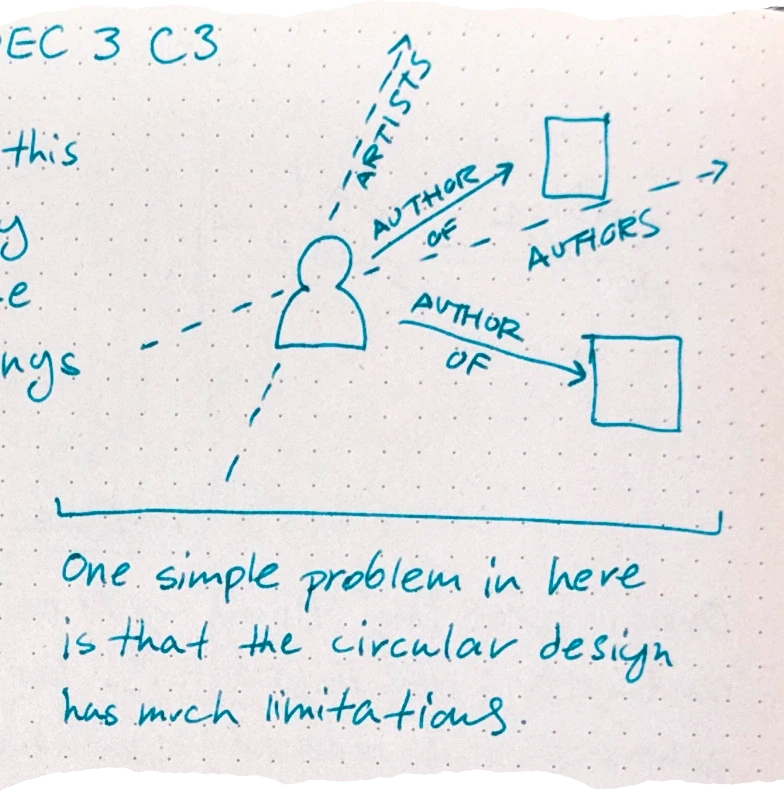 EC 3 C3
this
y
e
ngs
ARTISTS
AUTHOR
OF
AUTHORS
AUTHOR
OF
One simple problem in here
is that the circular design
has much limitations.